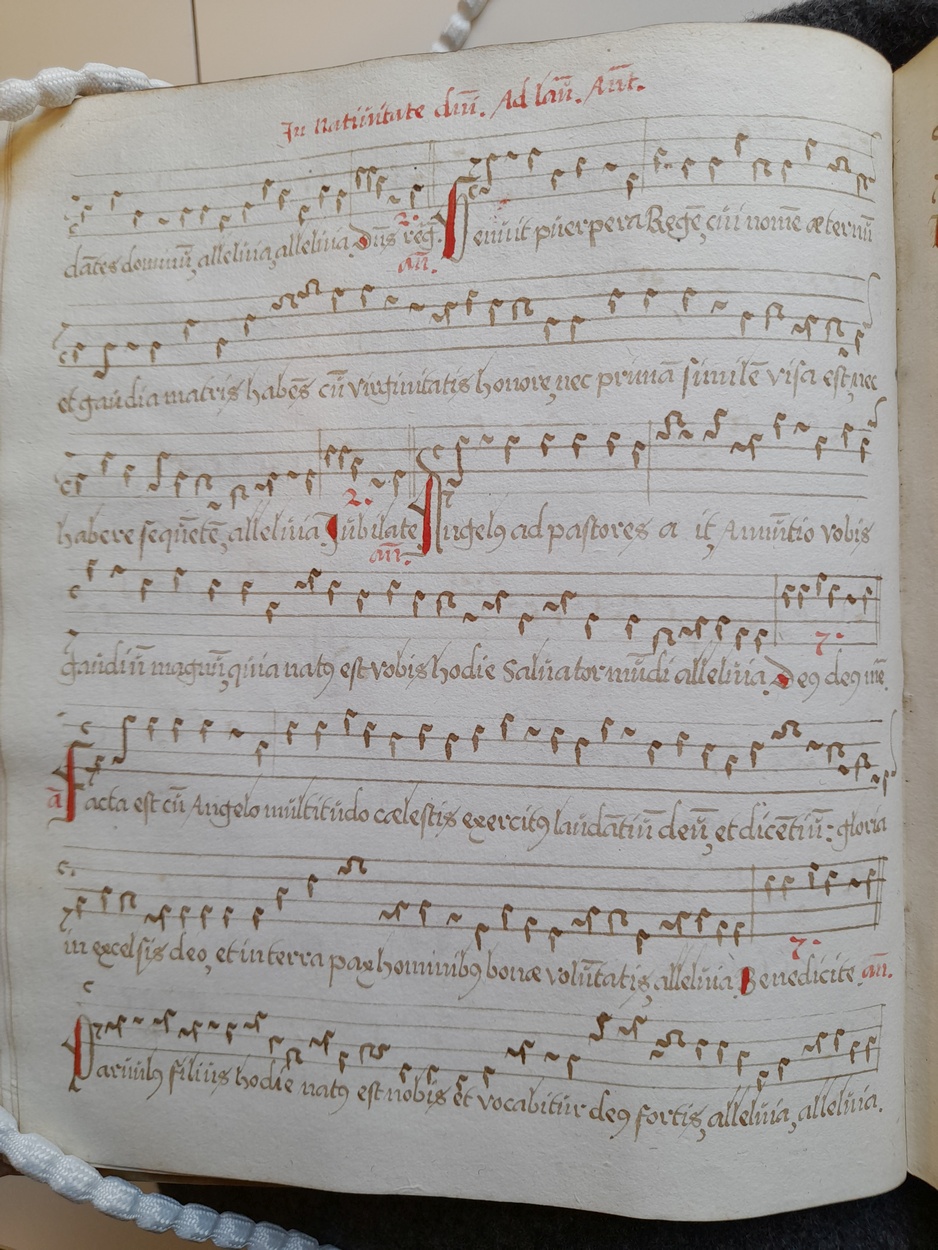 In natiuitate dnī. Ad laū. Ant.
dātes dominū, alleluia, alleluia. Dn̄s reg. 2. an̄. Genuit puerpera Regē, cui nomē æternū
et gaudia matris habēs cū virginitatis honore, nec primā similē visa est, nec
habere sequētē, alleluia. Jubilate 2. an̄. Angelꝰ ad pastores a it, Annūtio vobis
gaudiū magnū, quia natꝰ est vobis hodie Saluator mūdi alleluia. Deꝰ deꝰ mē. 7.
a Facta est cū Angelo multitudo cælestis exercitꝰ laudātiū deū, et dicētiū: gloria
in excelsis deo, et in terra pax hominibꝰ bonæ volūtatis, alleluia. Benedicite. 7. an̄.
Paruulꝰ filius hodie natꝰ est nobis et vocabitur deꝰ fortis, alleluia, alleluia.